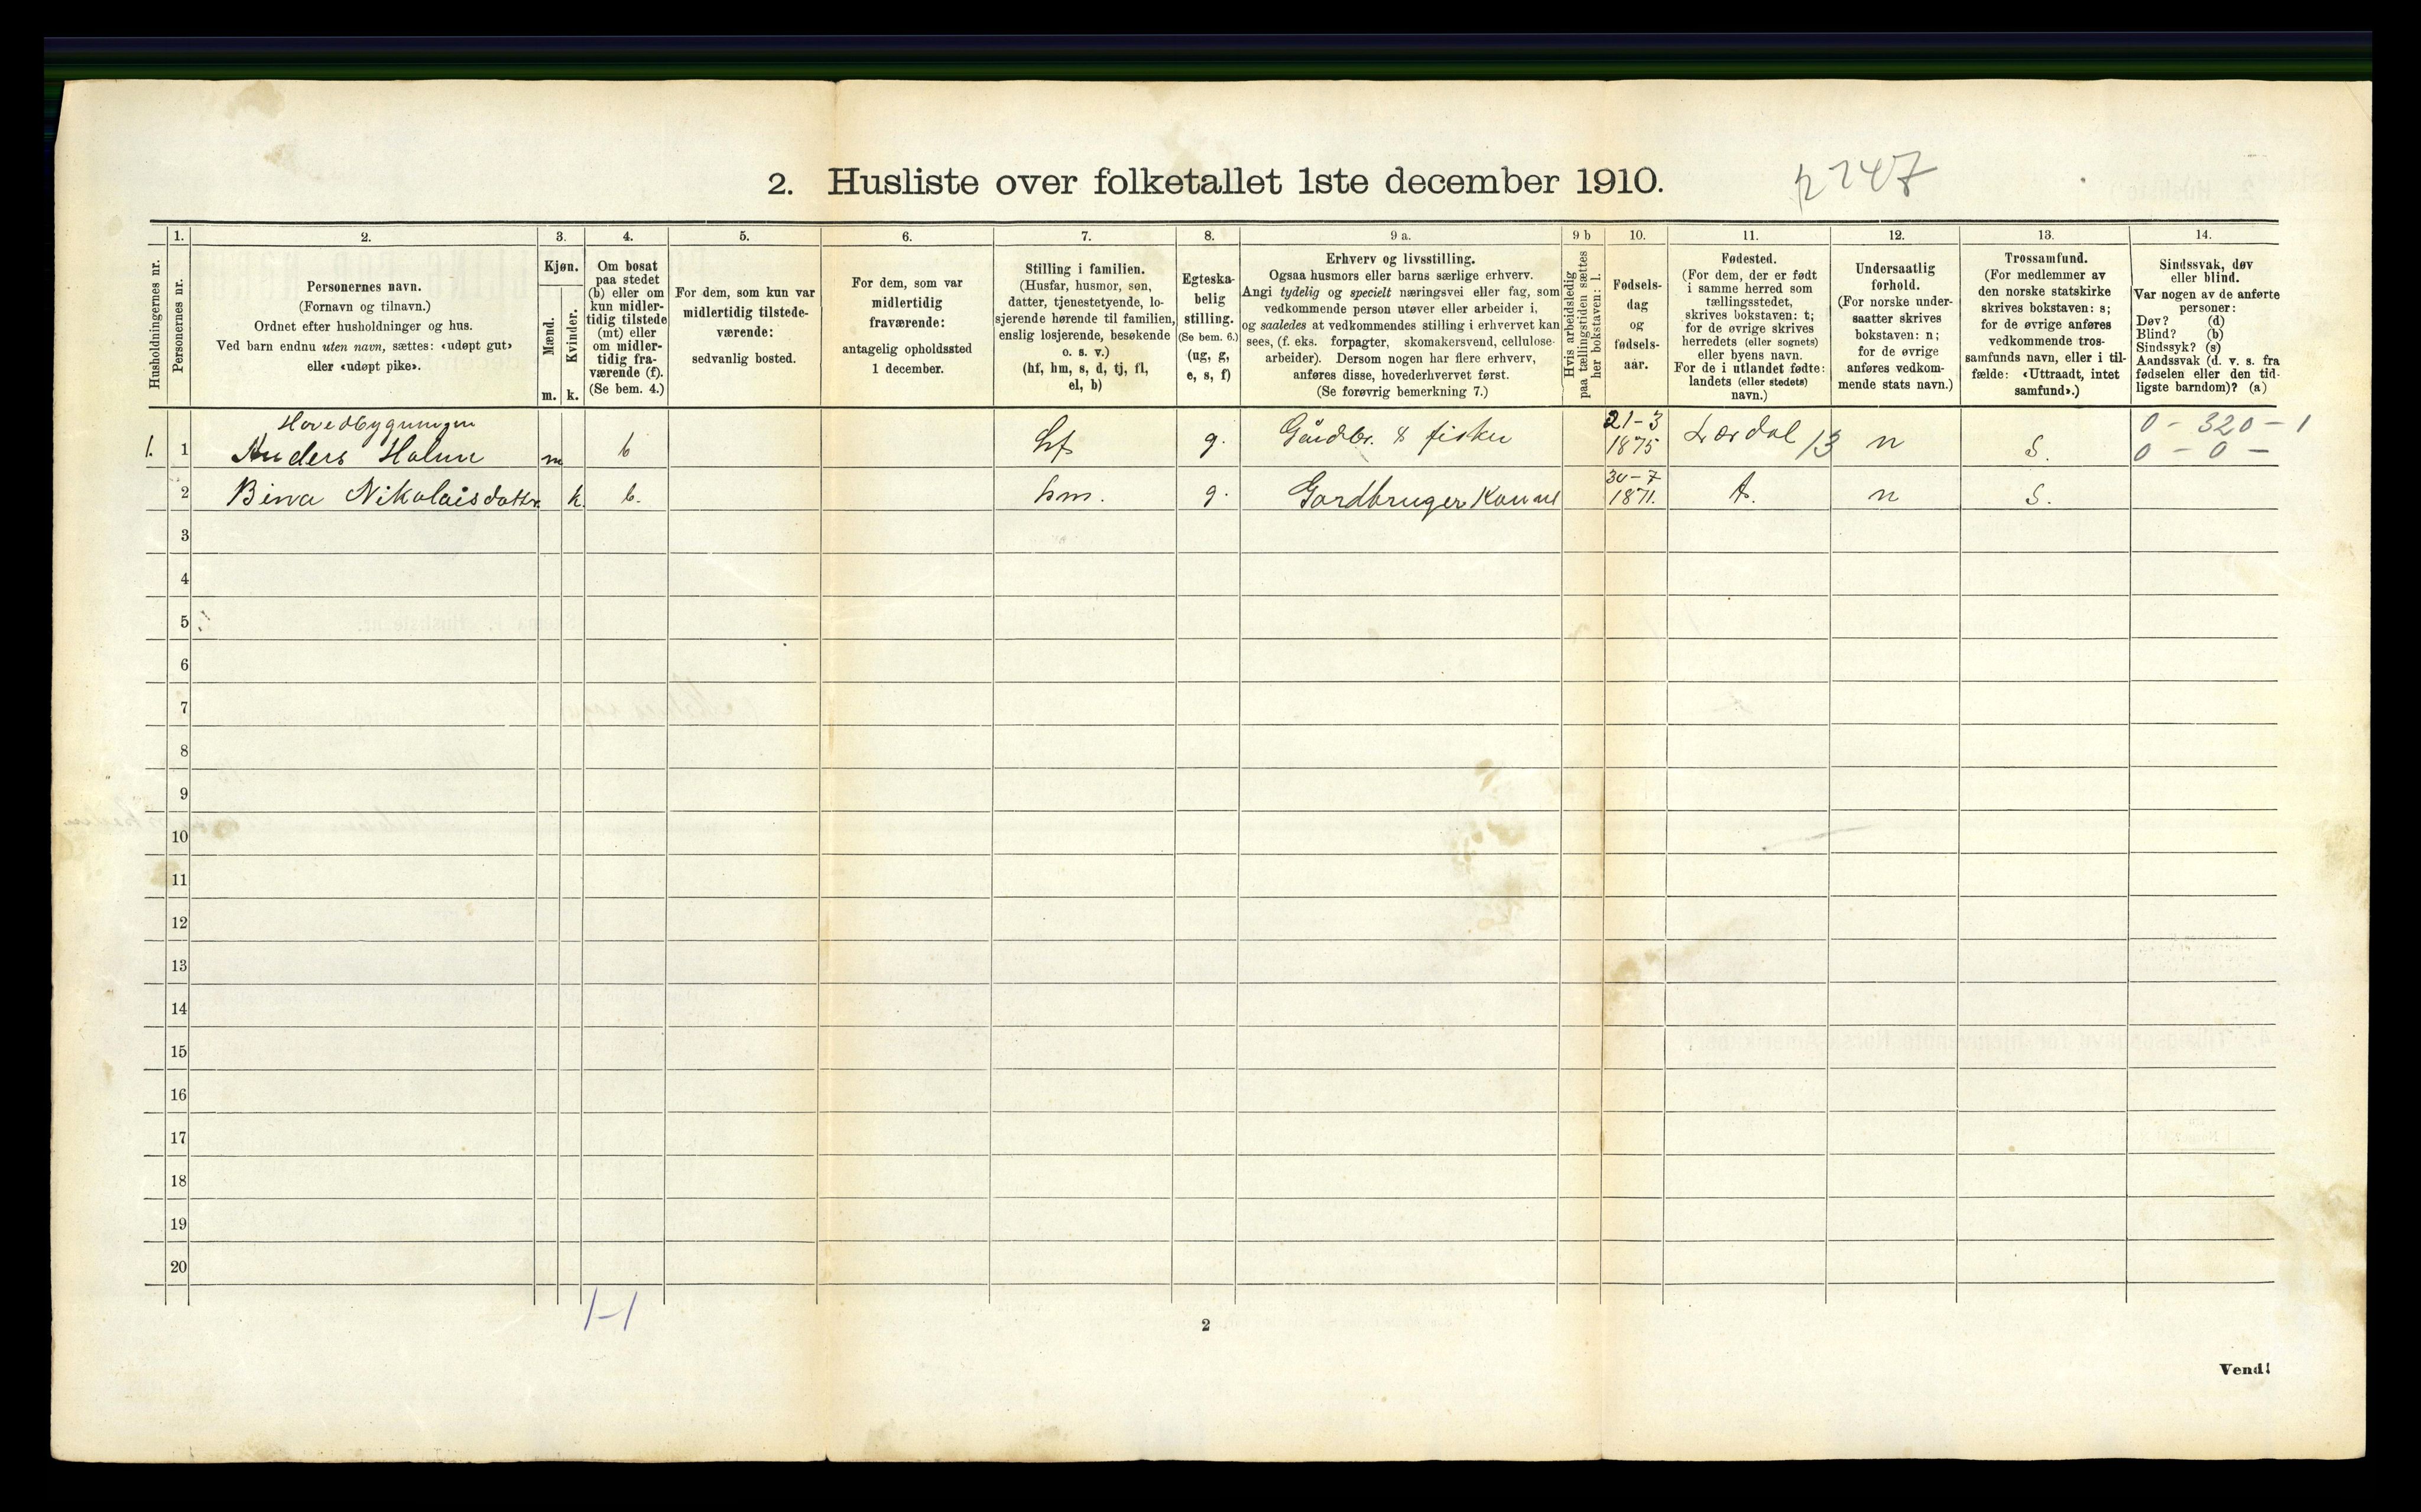 2. Husliste over folketallet 1ste december 1910.
1. 2. 3. 4. 5. 6. 7. 8. 9 a. 9 b 10. 11. 12. 13. 14.
Husholdningernes nr.
Personernes nr.
Personernes navn.
(Fornavn og tilnavn.)
Ordnet efter husholdninger og hus.
Ved barn endnu uten navn, sættes: «udøpt gut»
eller «udøpt pike».
Kjøn.
Mænd.
Kvinder.
m. k.
Om bosat
paa stedet
(b) eller om
kun midler-
tidig tilstede
(mt) eller
om midler-
tidig fra-
værende (f).
(Se bem. 4.)
For dem, som kun var
midlertidig tilstede-
værende:
sedvanlig bosted.
For dem, som var
midlertidig
fraværende:
antagelig opholdssted
1 december.
Stilling i familien.
(Husfar, husmor, søn,
datter, tjenestetyende, lo-
sjerende hørende til familien,
enslig losjerende, besøkende
o. s. v.)
(hf, hm, s, d, tj, fl,
el, b)
Egteska-
belig
stilling.
(Se bem. 6.)
(ug, g,
e, s, f)
Erhverv og livsstilling.
Ogsaa husmors eller barns særlige erhverv.
Angi tydelig og specielt næringsvei eller fag, som
vedkommende person utøver eller arbeider i,
og saaledes at vedkommendes stilling i erhvervet kan
sees, (f. eks. forpagter, skomakersvend, cellulose-
arbeider). Dersom nogen har flere erhverv,
anføres disse, hovederhvervet først.
(Se forøvrig bemerkning 7.)
Hvis arbeidsledig
paa tællingstiden sættes
her bokstaven: l.
Fødsels-
dag
og
fødsels-
aar.
Fødested.
(For dem, der er født
i samme herred som
tællingsstedet,
skrives bokstaven: t;
for de øvrige skrives
herredets (eller sognets)
eller byens navn.
For de i utlandet fødte:
landets (eller stedets)
navn.)
Undersaatlig
forhold.
(For norske under-
saatter skrives
bokstaven: n;
for de øvrige
anføres vedkom-
mende stats navn.)
Trossamfund.
(For medlemmer av
den norske statskirke
skrives bokstaven: s;
for de øvrige anføres
vedkommende tros-
samfunds navn, eller i til-
fælde: «Uttraadt, intet
samfund».)
Sindssvak, døv
eller blind.
Var nogen av de anførte
personer:
Døv? (d)
Blind? (b)
Sindssyk? (s)
Aandssvak (d. v. s. fra
fødselen eller den tid-
ligste barndom)? (a)
Hovedbygningen
21-3 0 - 320 - 1
1. 1 Anders Holme m b hf g. Gårdbr. & fisker 1875 Lærdal 13 n s. 0 - 0 -
30-7
2 Bina Nikolaisdatter. k. b. hm. g. Gardbruger Konne 1871. t. n s.
3
4
5
6
7
8
9
10
11
12
13
14
15
16
17
18
19
20
1-1
2
Vend!